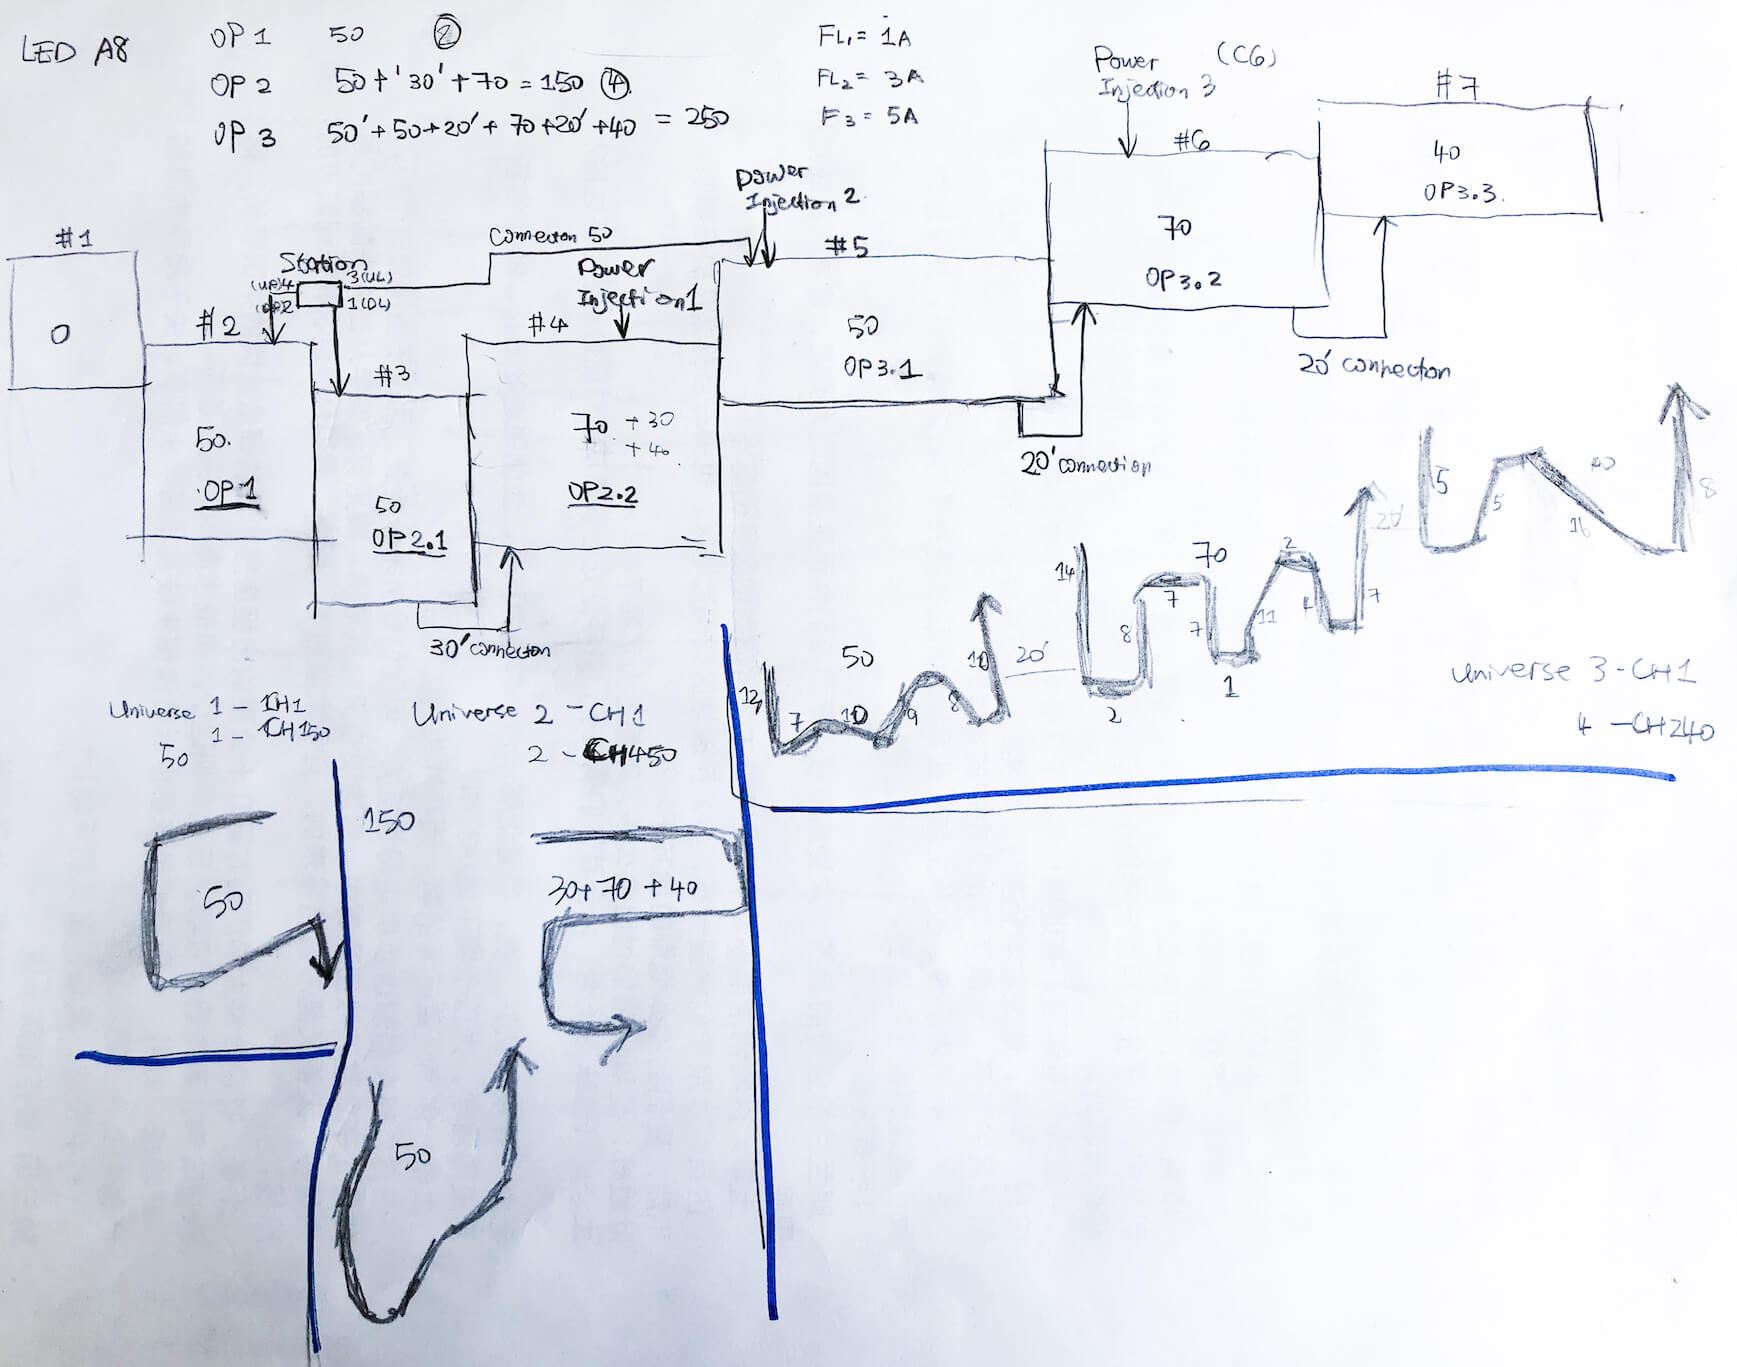 LED A8
OP 1 50 ②
OP 2 50 + '30' + 70 = 150 ④
OP 3 50' + 50 + 20' + 70 + 20' + 40 = 250
FL1 = 1A
FL2 = 3A
F3 = 5A
Power (C6)
Injection 3
#7
40
OP3.3.
#6
70
OP3.2
20' connection
Power
Injection 2
#5
50
OP3.1
20' connection
Connection 50
Station
3(UL)
1(DL)
Power
Injection 1
#1
0
#2
50.
OP1
#3
50
OP2.1
#4
70 + 30
+ 40
OP2.2
30' connection
50
12
7
10
9
8
10
20'
70
14
2
8
7
7
1
11
2
4
7
5
5
16
8
Universe 3 - CH1
4 - CH240
Universe 1 - CH1
1 - CH150
50
Universe 2 - CH1
2 - CH450
150
50
30+70+40
50